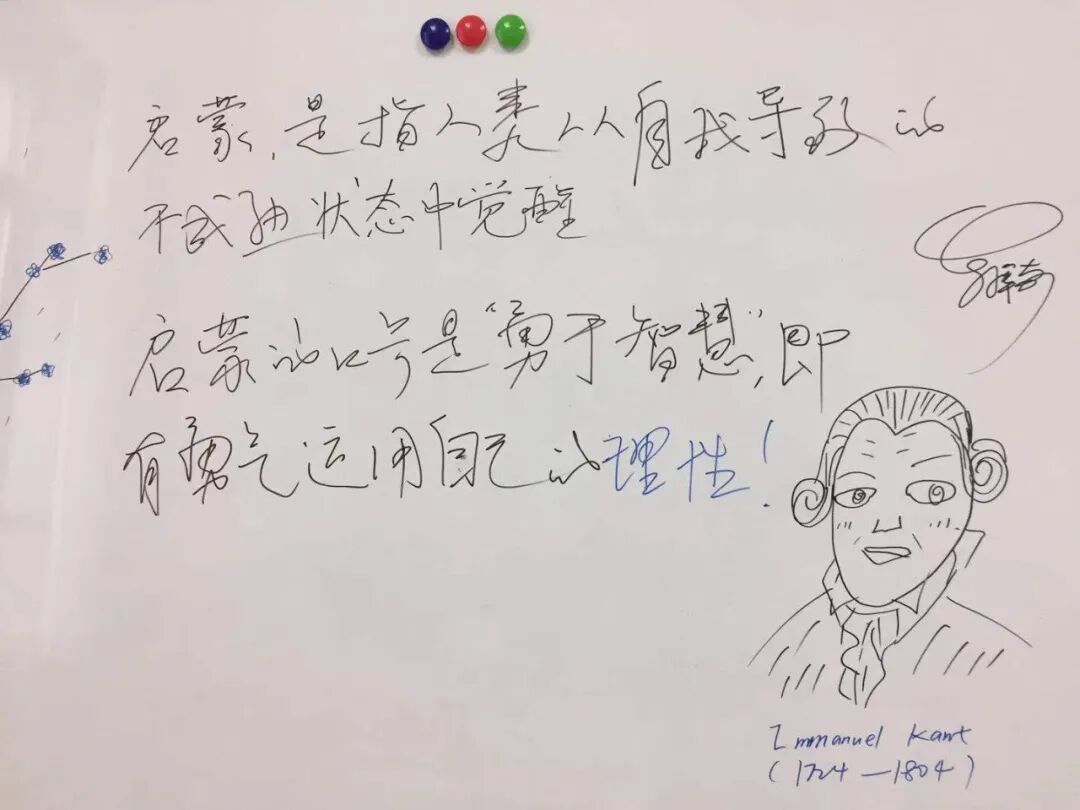 启蒙,是指人类从自我导致的
不成熟状态中觉醒
启蒙的口号是“勇于智慧”,即
有勇气运用自己的理性!
Immanuel Kant
(1724—1804)